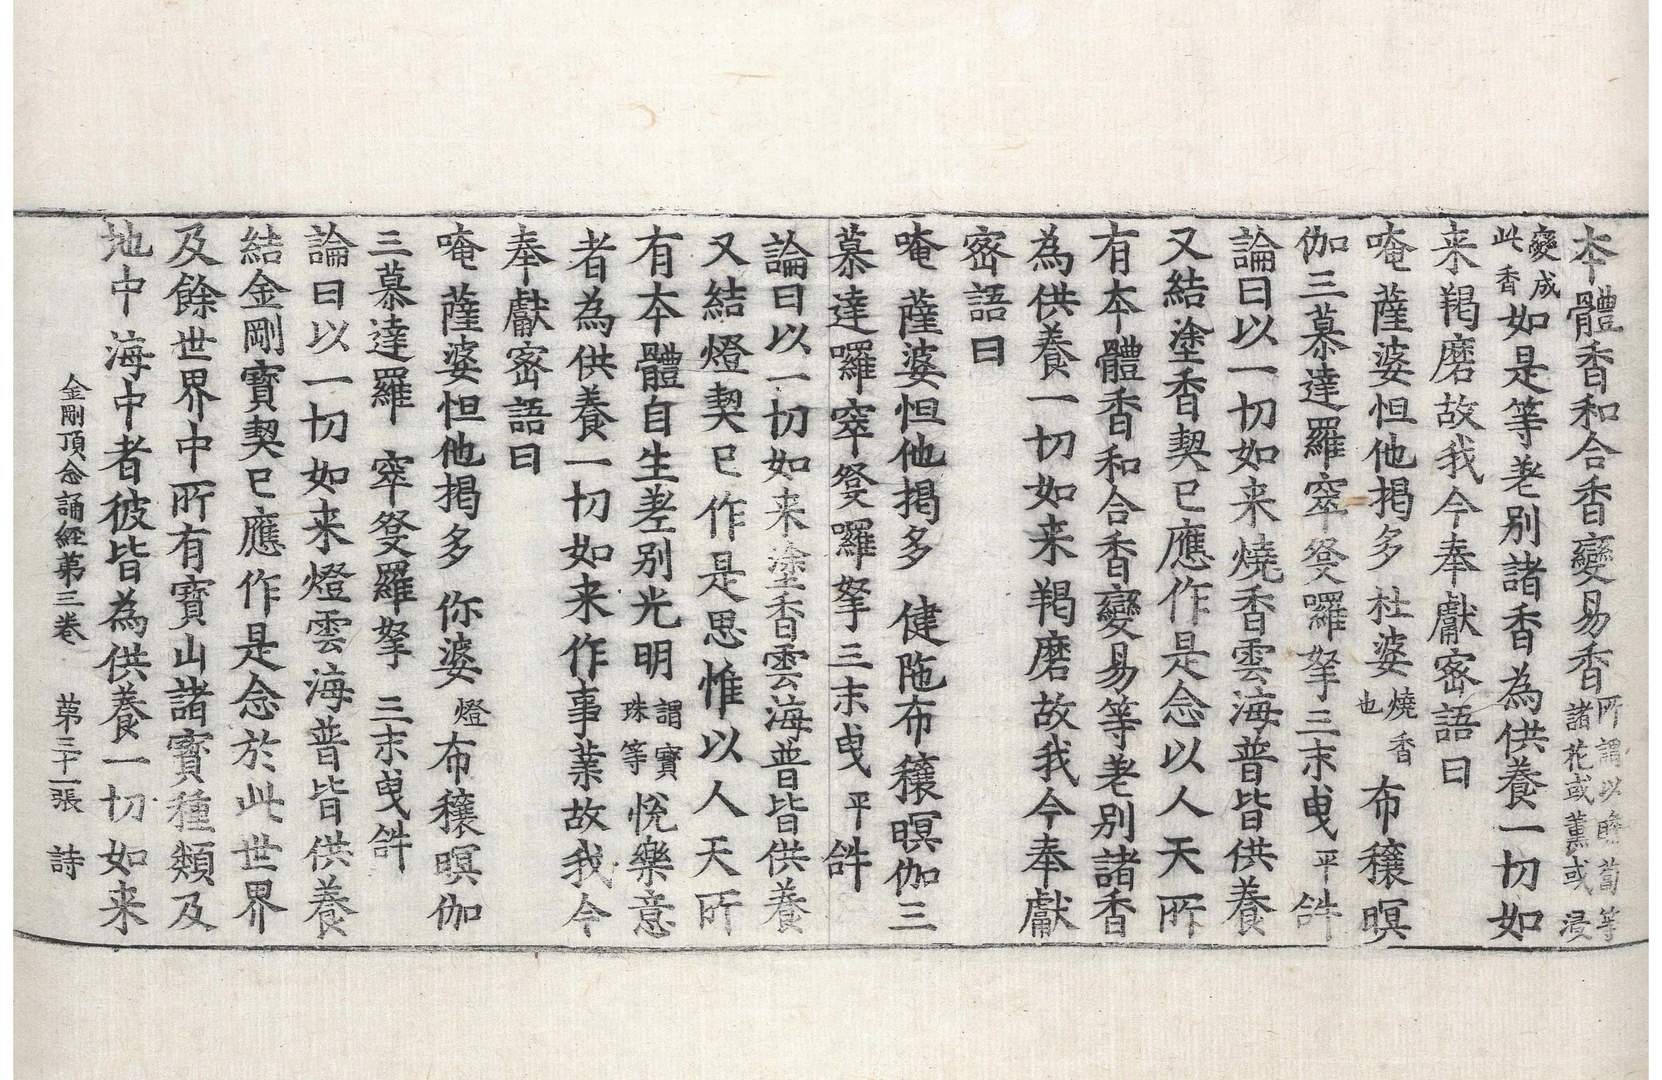 本體香和合香變易香所謂以瞻蔔等諸花或薰或浸
變成此香如是等差別諸香為供養一切如
来羯磨故我今奉獻密語曰
唵 薩婆怛他揭多 杜婆燒香也布穰暝
伽三慕達羅窣發囉拏三末曳平𤙖
論曰以一切如来燒香雲海普皆供養
又結塗香契已應作是念以人天所
有本體香和合香變易等差別諸香
為供養一切如来羯磨故我今奉獻
密語曰
唵 薩婆怛他揭多 健陁布穰暝伽三
慕達囉窣發囉拏三末曳平𤙖
論曰以一切如来塗香雲海普皆供養
又結燈契已作是思惟以人天所
有本體自生差別光明謂寶珠等悅樂意
者為供養一切如来作事業故我今
奉獻密語曰
唵 薩婆怛他揭多 你婆燈布穰暝伽
三慕達羅 窣發羅拏 三末曳𤙖
論曰以一切如来燈雲海普皆供養
結金剛寶契已應作是念於此世界
及餘世界中所有寶山諸寶種類及
地中海中者彼皆為供養一切如来
金剛頂念誦經第三卷 第三十一張 詩